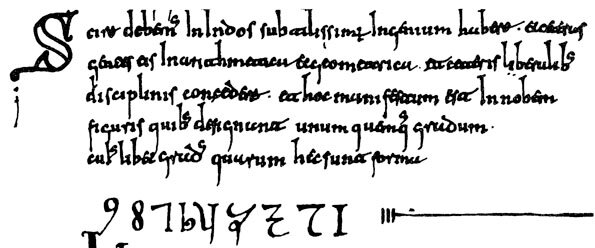 Scire debemꝰ In Indos subtilissimum Ingenium habere . et ceteras
gentes eis In arithmetica et geometrica . et ceteris liberalibꝰ
disciplinis concedere . et hoc manifestum est In nobem
figuris quibꝰ designant unum quemqꝫ gradum .
cuiꝰlibet gradꝰ quarum hec sunt forma
9 8 7 6 5 4 3 2 1